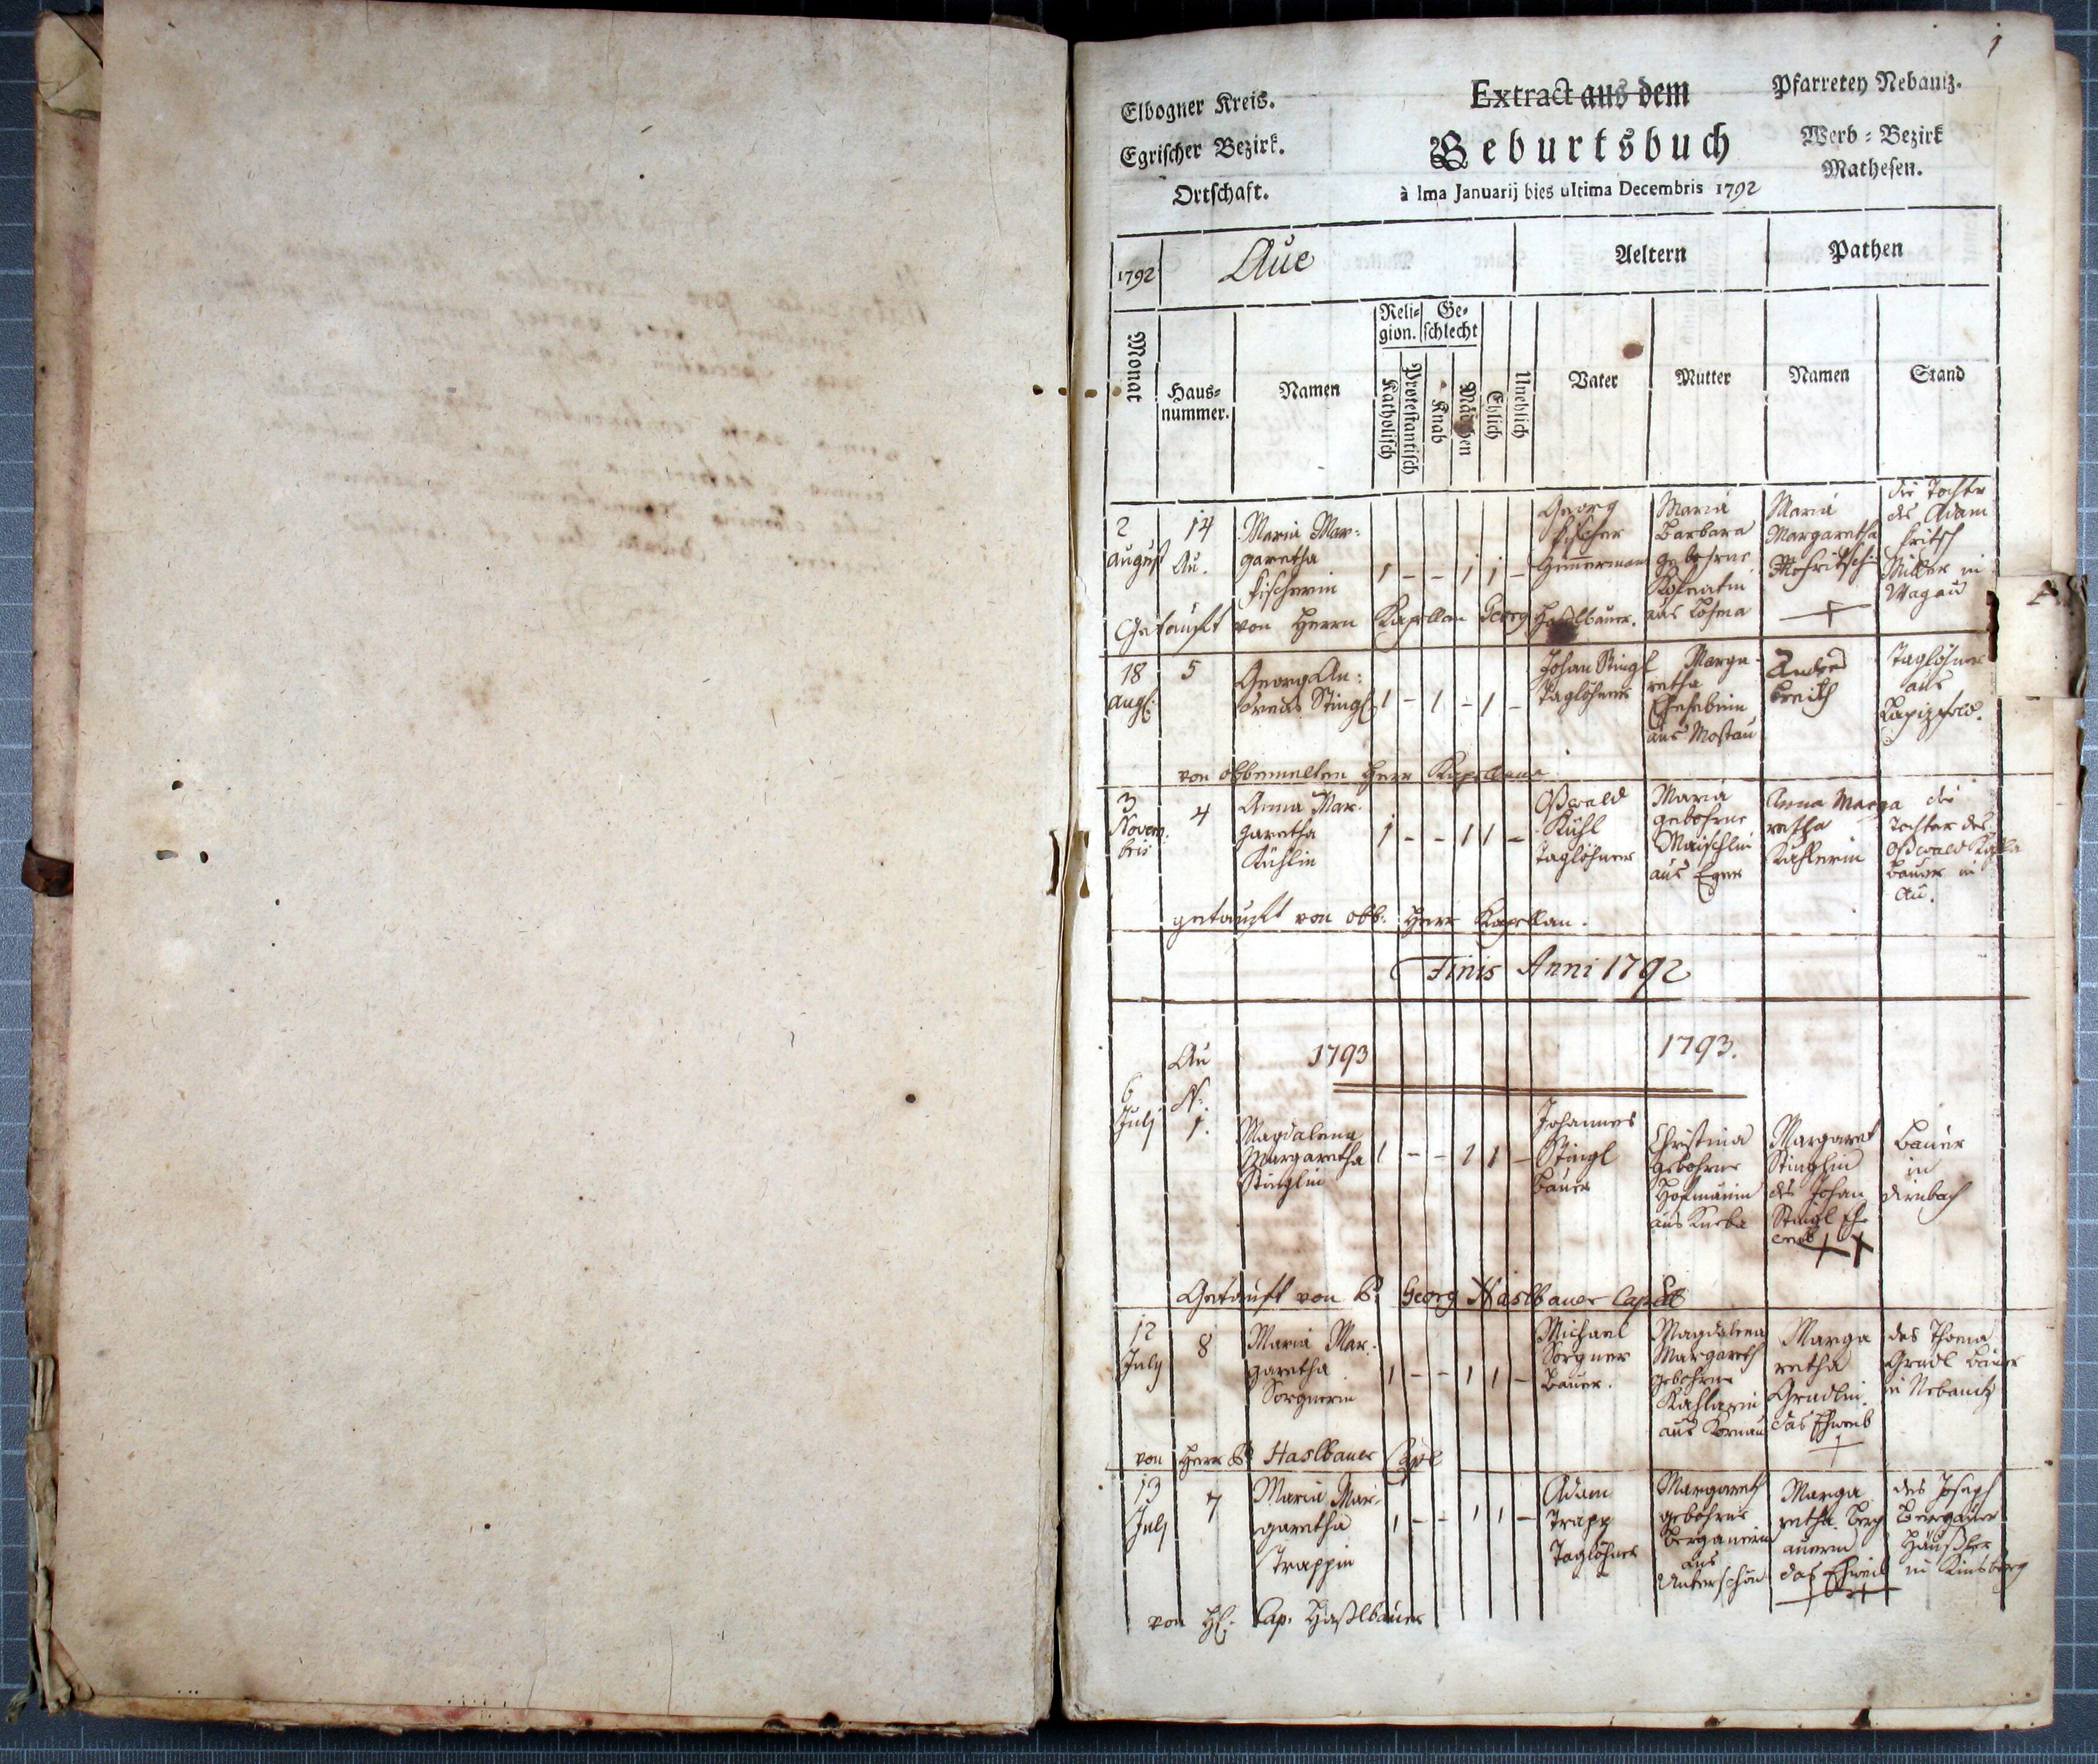 1
Elbogner Kreis.
Egrischer Bezirk.
Ortschaft.
Extract aus dem
Geburtsbuch
à Ima Januarij bies ultima Decembris 1792
Pfarretey Nebaniz.
Werb-Bezirk
Mathesen.
1792
Aue
Aeltern
Pathen
Monat
Haus-
nummer.
Namen
Reli-
gion.
Ge-
schlecht
Katholisch
Protestantisch
Knab
Mädchen
Ehlich
Unehlich
Vater
Mutter
Namen
Stand
2
August
14
Au.
Maria Mar:
garetha
Fischerin
1 - - 1 1 -
Georg
Fischer
Zimmerman
Maria
Barbara
gebohrne
aus Lohma
Maria
Margaretha
die Tochter
des Adam
Fritsch
Müller in
Wagau
Getauft von Herrn Kapellan Georg Haslbauer.
18
Aug:
5
Georg An:
dreas Stingl
1 - 1 - 1 -
Johan Stingl
Taglöhner
Marga
retha
aus Mostau
Taglöhner
aus
von obbemelten Herr Kapellane
3
Novem
bris
4
Anna Mar-
garetha
Kühlin
1 - - 1 1 -
Oßwald
Kühl
Taglöhner
Maria
gebohrne
Maischlin
aus Eger
Anna Marga
retha
Kahlerin
die
Tochter des
Oßwald
Bauer in
Au.
getauft von obb. Herr Kapellan.
Finis Anni 1792
Au
1793
1793.
6
July
N:
1.
Magdalena
Margaretha
Stinglin
1 - - 1 1 -
Johannes
Stingl
Bauer
Christina
gebohrne
Hofmänin
aus Kneba
Margaret
Stinglin
des Johan
Stingl Eh
weib
Bauer
in
Dirnbach
Getauft von P: Georg Haslbauer Capell
12
July
8
Maria Mar-
garetha
Sorgnerin
1 - - 1 1 -
Michael
Sorgner
Bauer.
Magdalena
Margareth
gebohrne
Kahlerin
aus Kornau
Marga
retha
Gradlin
das Ehweib
des Thoma
Gradl Bauer
in Nebanitz
von Herr P: Haslbauer Capl
13
July
7
Maria Mar-
garetha
Trappin
1 - - 1 1 -
Adam
Trapp
Taglöhner
Margareth
gebohrne
Bergauerin
aus
Unterschön
Marga
retha Berg
auerin
das Ehweib
des Joseph
Bergauer
Häußler
in Kinsberg
von H: Cap. Haßlbauer